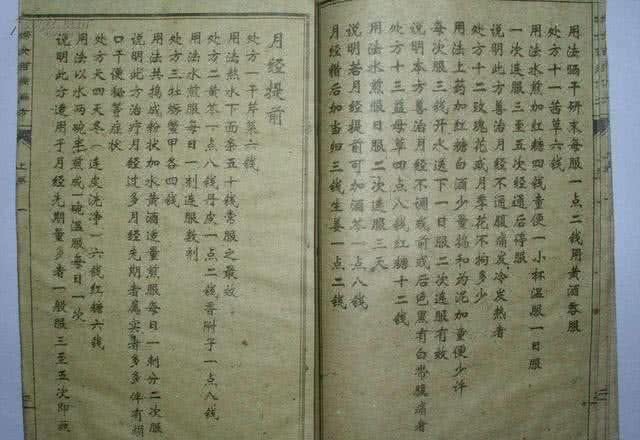 用法隔干研末每服一点二钱用黄酒吞服
处方十一苦草六钱
用法水煎加红糖四钱童便一小杯温服一日服
一次连服三至五次经通后停服
说明此方善治月经不通腹痛发冷发热者
处方十二玫瑰花或月季花不拘多少
用法上药加红糖白酒少量捣和为泥加童便少许
每次服三钱开水送下一日服二次连服有效
说明本方善治月经不调或前或后色黑有白带腹痛者
处方十三益母草四点八钱红糖十二钱
用法水煎服日服二次连服三天
说明若月经提前可加酒芩一点八钱
月经错后加当归三钱生姜一点二钱
月经提前
处方一干芹菜六钱
用法熬水下面条五十钱常服之最效
处方二黄芩一点八钱丹皮一点二钱香附子一点八钱
用法水煎服每日一剂连服数剂
处方三牡蛎鳖甲各四钱
用法共捣成粉状加水黄酒适量煎服每日一剂分二次服
说明此方治疗月经过多月经先期者属实者多多伴有烦
口干便秘等症状
处方四天冬（连皮洗净）六钱红糖六钱
用法以水两碗半煎成一碗温服每日一次
说明此方适用于月经先期量多者一般服三至五次即痊